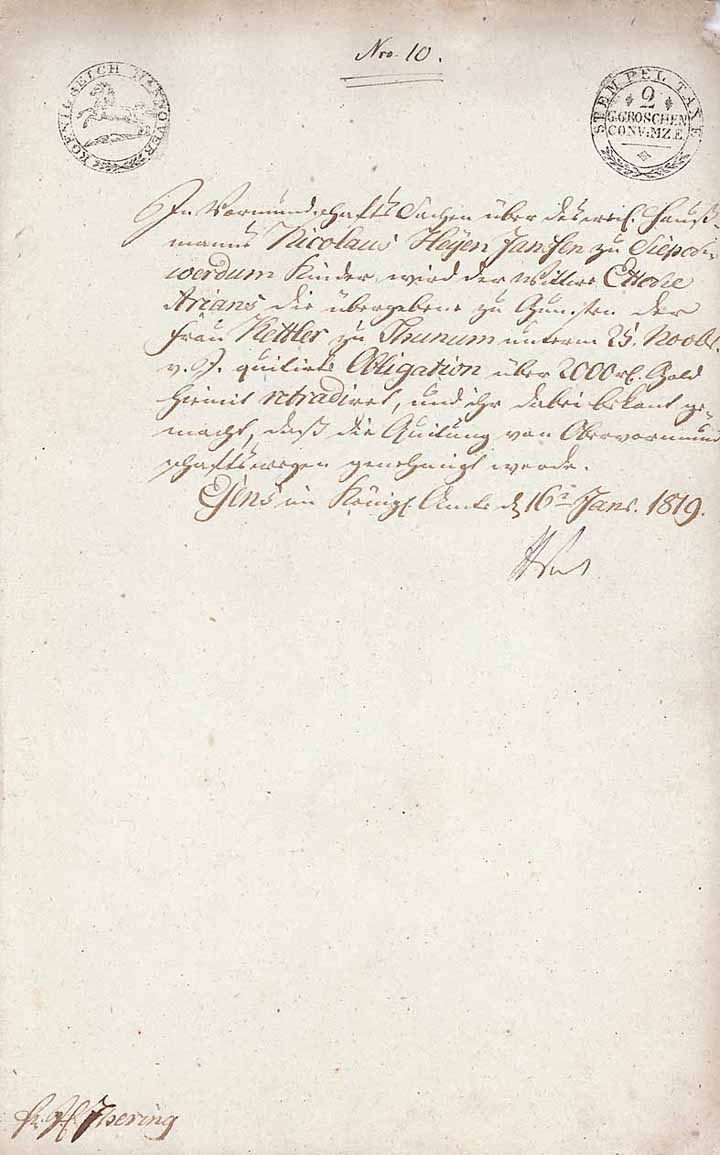 Nro. 10.
KOENIGREICH HANNOVER
STEMPEL TAXE
2
G.GROSCHEN
CONV:MZE
In Vormundschafts Sachen über des weil. Hauß-
manns Nicolaus Heyen Janssen zu Siepols-
werdum Kinder, wird der Wittwe
Arians die übergebene zu Gunsten der
Frau Kettler zu Thunum unterm 25. Novbr.
v. J. quitirte Obligation über 2000 rl. Gold
hiemit retradiret, und ihr dabei bekant ge-
macht, daß die Quitung von Obervormund
schaftswegen genehmigt werde.
Esens im Königl. Amte d. 16t Janr. 1819.
Jhering